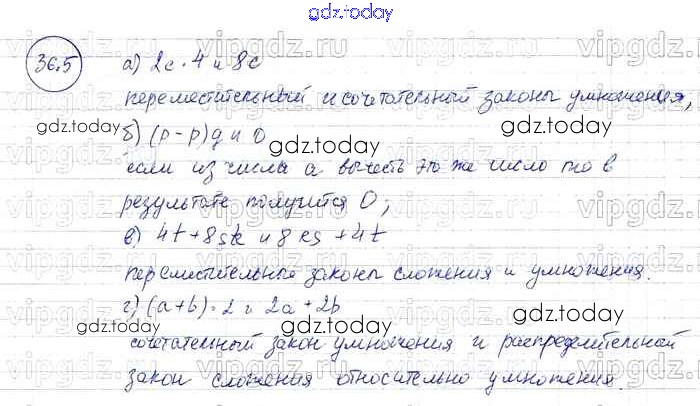 gdz.today
36.5
а) 2с · 4 и 8с
переместительный и сочетательный законы умножения,
gdz.today gdz.today
б) (p - p)q и 0
если из числа а вычесть это же число то в
результате получится 0;
в) 4t + 8sk и 8ks + 4t
gdz.today gdz.today
переместительные законы сложения и умножения.
г) (a + b) · 2 и 2a + 2b
gdz.today gdz.today
сочетательный закон умножения и распределительной
закон сложения относительно умножения.
vipgdz.ru